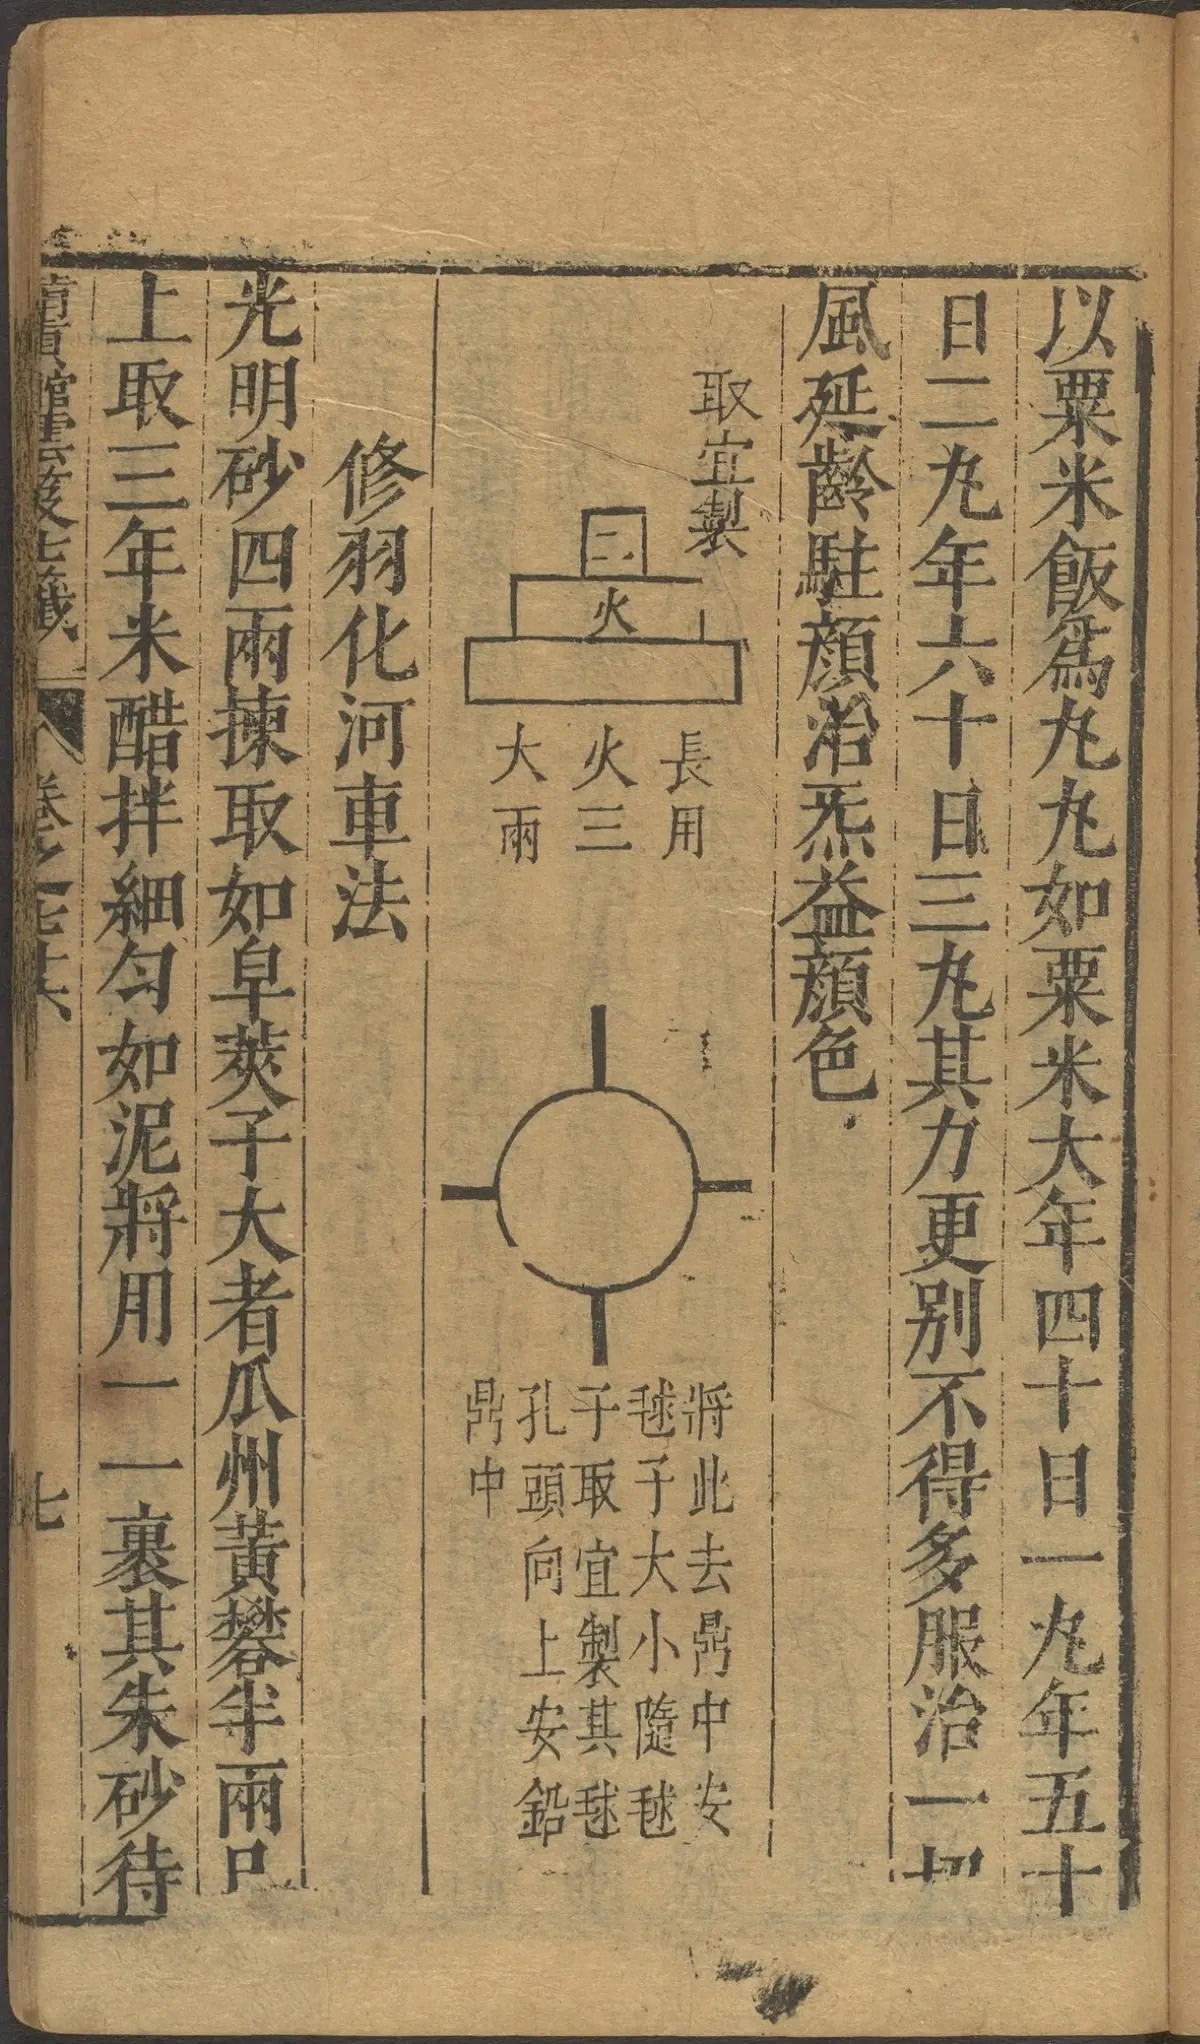 以粟米飯爲丸丸如粟米大年四十日一丸年五十
日二丸年六十日三丸其力更别不得多服治一切
風延齡駐顔治炁益顔色
取宜製
二
火
長用
火三
大兩
將此去鼎中安
毬子大小隨毬
子取宜製其毬
孔頭向上安鉛
鼎中
修羽化河車法
光明砂四兩揀取如皁莢子大者瓜州黃礬半兩已
上取三年米醋拌細匀如泥將用一一裹其朱砂待
雲笈七籤 卷之七十六 七